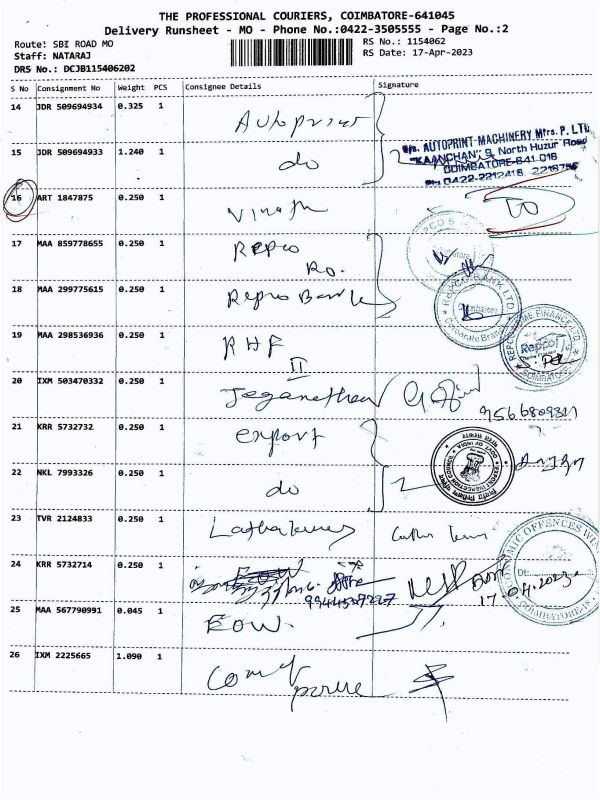 THE PROFESSIONAL COURIERS, COIMBATORE-641045
Delivery Runsheet - MO - Phone No.:0422-3505555 - Page No.:2
Route: SBI ROAD MO
RS No.: 1154062
Staff: NATARAJ
RS Date: 17-Apr-2023
DRS No.: DCJB115406202
S No Consignment No Weight PCS Consignee Details Signature
14 JDR 509694934 0.325 1 Autoprint
15 JDR 509694933 1.240 1 do
M/s. AUTOPRINT MACHINERY Mfrs. P. LTD
"KAANCHAN", 9, North Huzur Road
COIMBATORE-641 018
Ph: 0422-2212416, 2216756
16 ART 1847875 0.250 1
17 MAA 859778655 0.250 1 Repco
Ro.
18 MAA 299775615 0.250 1 Repco Bank
REPCO BANK LTD
Coimbatore
Corporate Branch
19 MAA 298536936 0.250 1 RHF
II
REPCO HOME FINANCE LTD
Repco
COIMBATORE
20 IXM 503470332 0.250 1 Jeganathan
21 KRR 5732732 0.250 1 export
22 NKL 7993326 0.250 1 do
23 TVR 2124833 0.250 1
24 KRR 5732714 0.250 1
ECONOMIC OFFENCES WING
Dt:
COIMBATORE
17.04.2023
25 MAA 567790991 0.045 1 EOW.
26 IXM 2225665 1.090 1